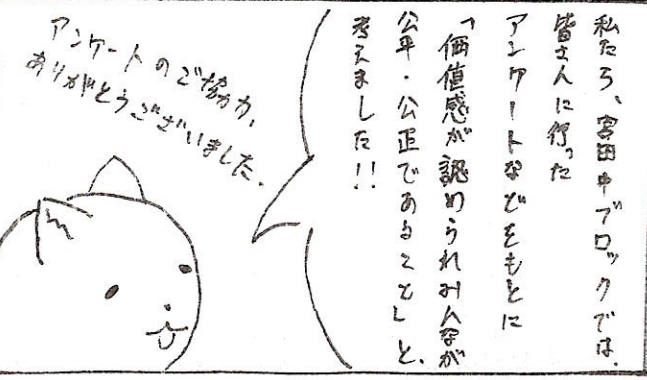 私たち、宮田中ブロックでは、
皆さんに行った
アンケートなどをもとに
「価値感が認められみんなが
公平・公正であること」と、
考えました!!
アンケートのご協力、
ありがとうございました。